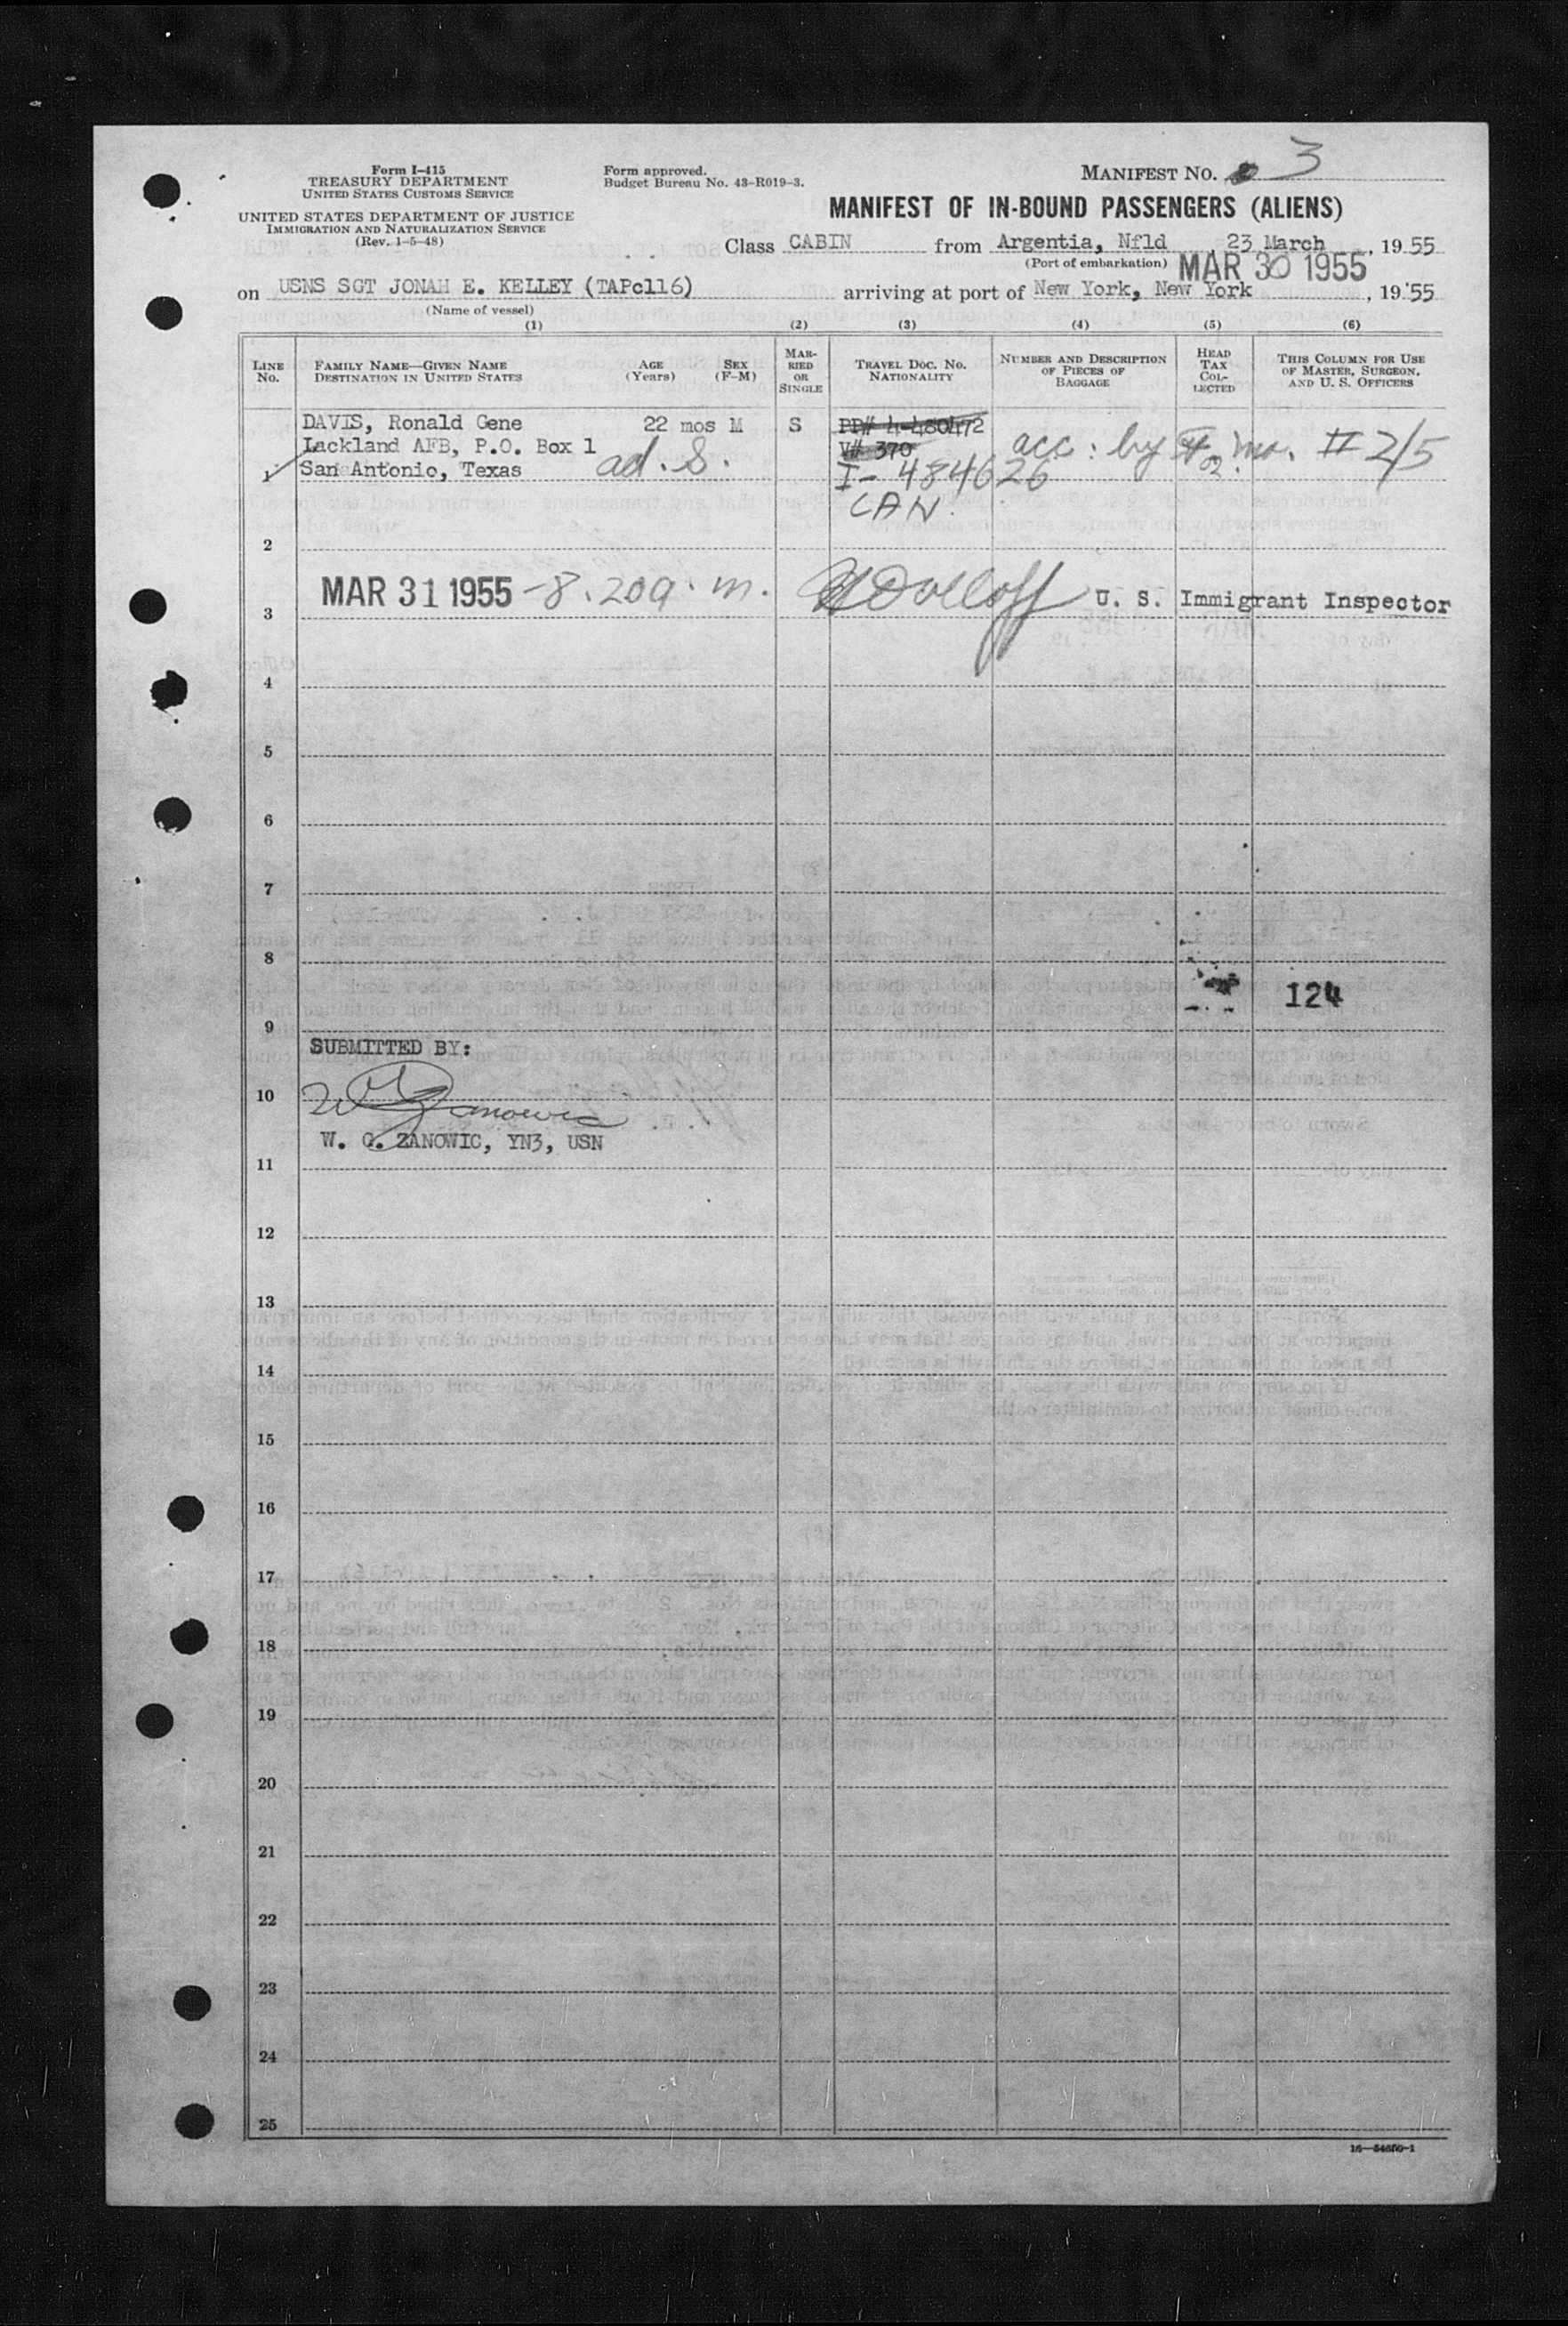 Form I-415
TREASURY DEPARTMENT
UNITED STATES CUSTOMS SERVICE
UNITED STATES DEPARTMENT OF JUSTICE
IMMIGRATION AND NATURALIZATION SERVICE
(Rev. 1-5-48)
Form approved.
Budget Bureau No. 43-R019-3.
MANIFEST NO. 3
MANIFEST OF IN-BOUND PASSENGERS (ALIENS)
Class CABIN from Argentia, Nfld, 23 March, 1955
(Port of embarkation) MAR 30 1955
on USNS SGT JONAH E. KELLEY (TAPc116) arriving at port of New York, New York, 19'55
(Name of vessel)
(1) (2) (3) (4) (5) (6)
LINE No. FAMILY NAME—GIVEN NAME DESTINATION IN UNITED STATES AGE (Years) SEX (F-M) MARRIED OR SINGLE TRAVEL DOC. NO. NATIONALITY NUMBER AND DESCRIPTION OF PIECES OF BAGGAGE HEAD TAX COLLECTED THIS COLUMN FOR USE OF MASTER, SURGEON, AND U. S. OFFICERS
DAVIS, Ronald Gene 22 mos M S PP# 4-480472
Lackland AFB, P.O. Box 1 V# 370 acc: by mo. #2/5
1 San Antonio, Texas ad. S. I-484626
CAN.
2
MAR 31 1955 -8.20a.m. U. S. Immigrant Inspector
3
4
5
6
7
8
124
9
SUBMITTED BY:
10
W. G. ZANOWIC, YN3, USN
11
12
13
14
15
16
17
18
19
20
21
22
23
24
25